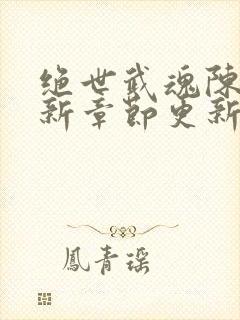 绝世武魂陈
新章節更新
鳳青瑶